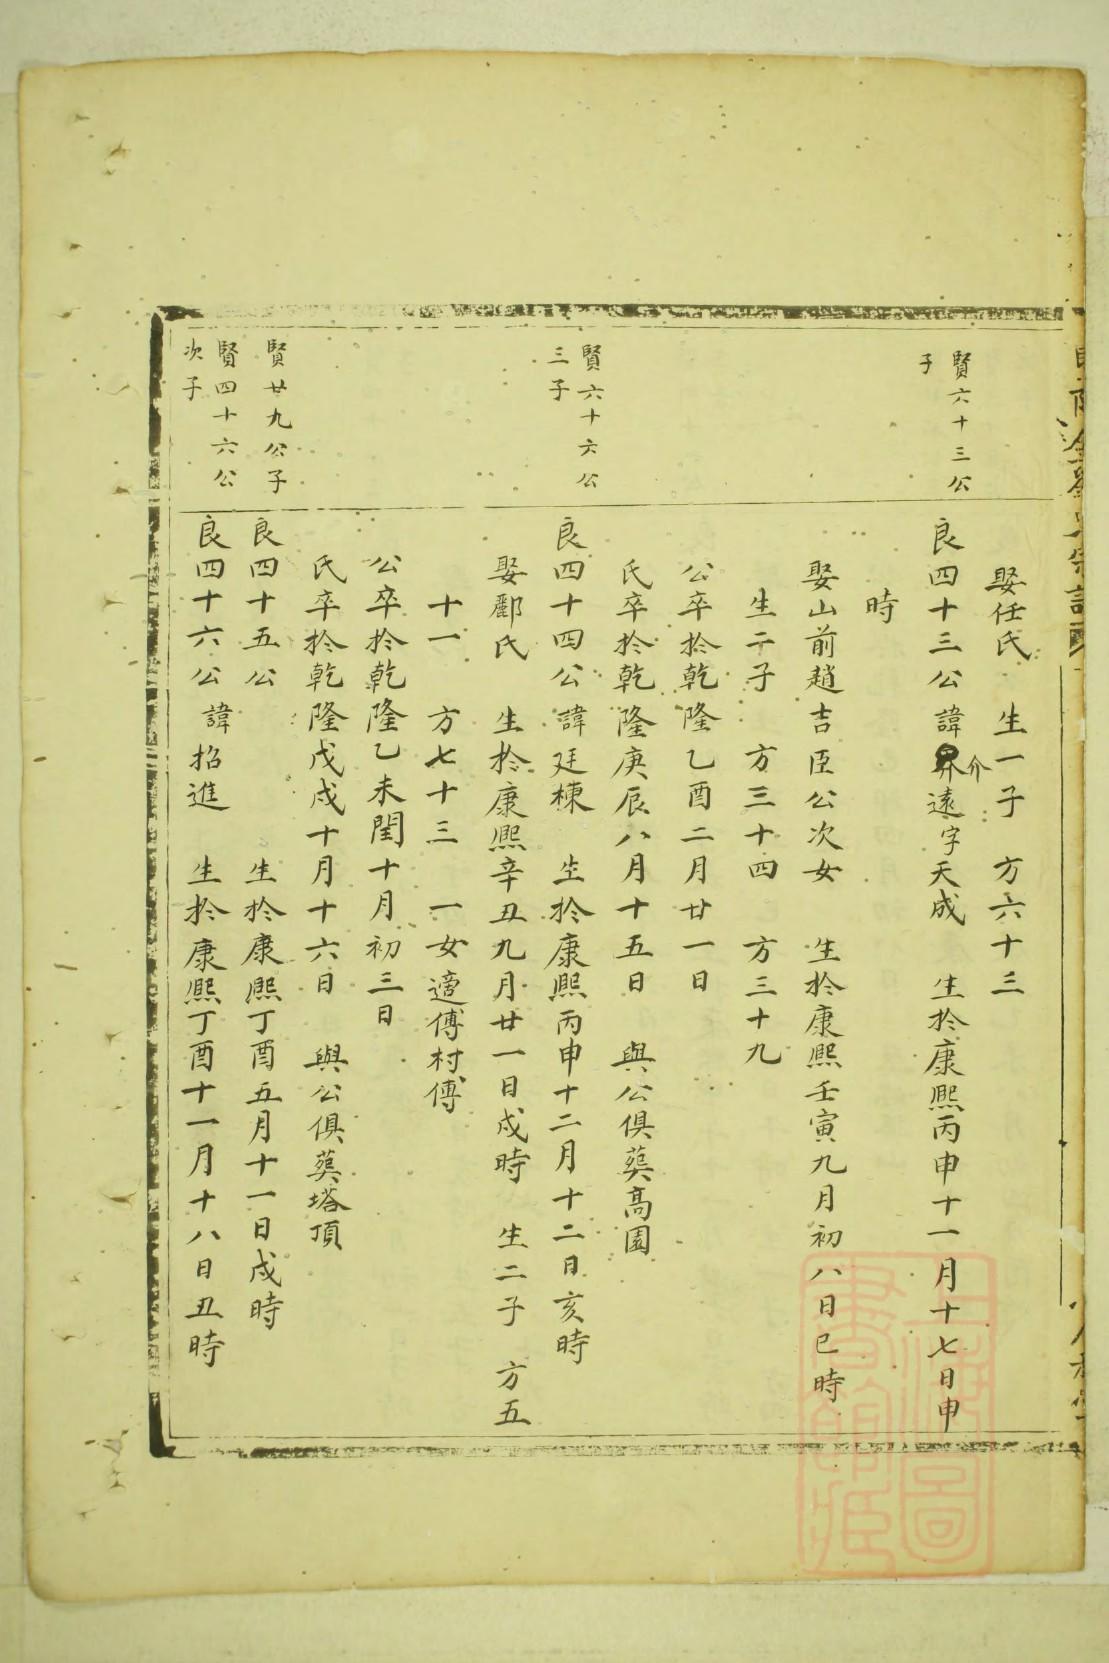 娶任氏　生一子　方六十三
賢六十三公
子
良四十三公諱界介遠字天成　生於康熙丙申十一月十七日申
時
娶山前趙吉臣公次女　生於康熙壬寅九月初八日巳時
生二子　方三十四　方三十九
公卒於乾隆乙酉二月廿一日
氏卒於乾隆庚辰八月十五日　與公俱葬高園
賢六十六公
三子
良四十四公諱廷棟　生於康熙丙申十二月十二日亥時
娶酈氏　生於康熙辛丑九月廿一日戌時　生二子　方五
十一　方七十三　一女適傅村傅
公卒於乾隆乙未閏十月初三日
氏卒於乾隆戊戌十月十六日　與公俱葬塔頂
賢廿九公子
良四十五公　生於康熙丁酉五月十一日戌時
賢四十六公
次子
良四十六公諱招進　生於康熙丁酉十一月十八日丑時